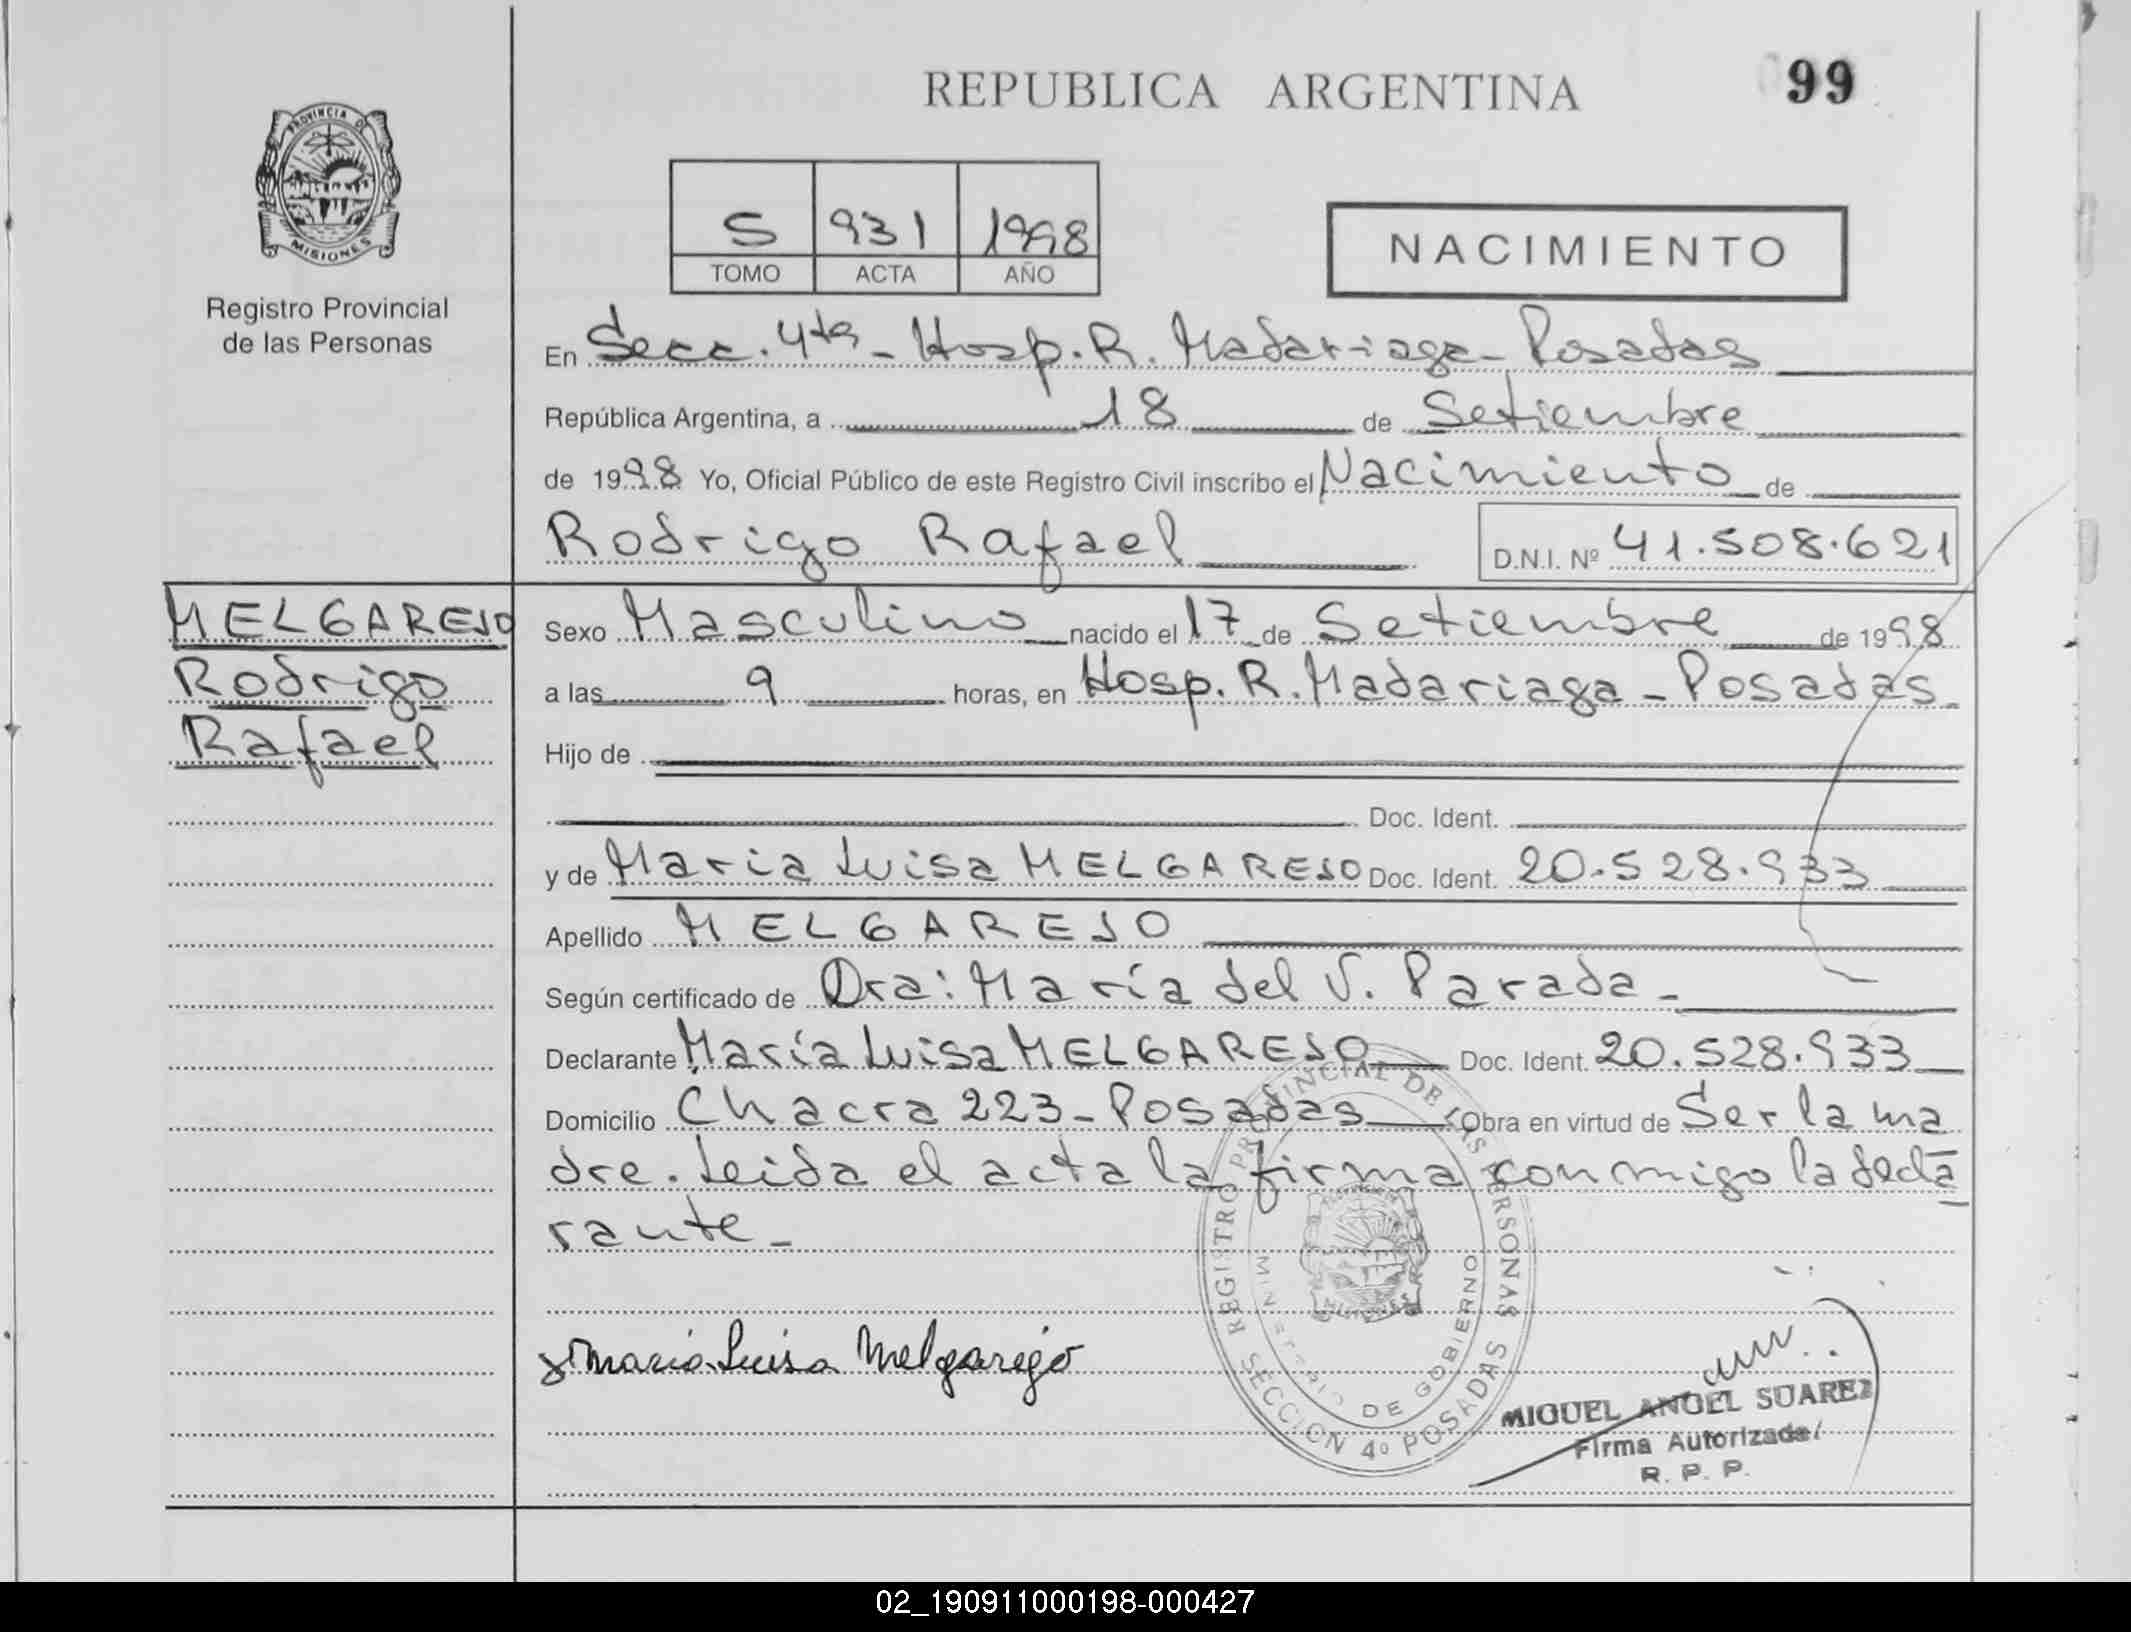 REPUBLICA ARGENTINA
99
PROVINCIA DE
MISIONES
Registro Provincial
de las Personas
5 931 1998
TOMO ACTA AÑO
NACIMIENTO
En Secc. 4ta - Hosp. R. Madariaga - Posadas
República Argentina, a 18 de Setiembre
de 1998 Yo, Oficial Público de este Registro Civil inscribo el Nacimiento de
Rodrigo Rafael D.N.I. Nº 41.508.621
MELGAREJO
Rodrigo
Rafael
Sexo Masculino nacido el 17 de Setiembre de 1998
a las 9 horas, en Hosp. R. Madariaga - Posadas
Hijo de
Doc. Ident.
y de Maria Luisa MELGAREJO Doc. Ident. 20.528.933
Apellido MELGAREJO
Según certificado de Dra: María del V. Parada -
Declarante María Luisa MELGAREJO Doc. Ident. 20.528.933
Domicilio Chacra 223 - Posadas Obra en virtud de Ser la ma
dre. Leida el acta la firma conmigo la decla
rante -
Maria Luisa Melgarejo
REGISTRO PROVINCIAL DE LAS PERSONAS
SECCION 4º POSADAS
MINISTERIO DE GOBIERNO
MISIONES
MIGUEL ANGEL SUAREZ
Firma Autorizada
R. P. P.
02_190911000198-000427